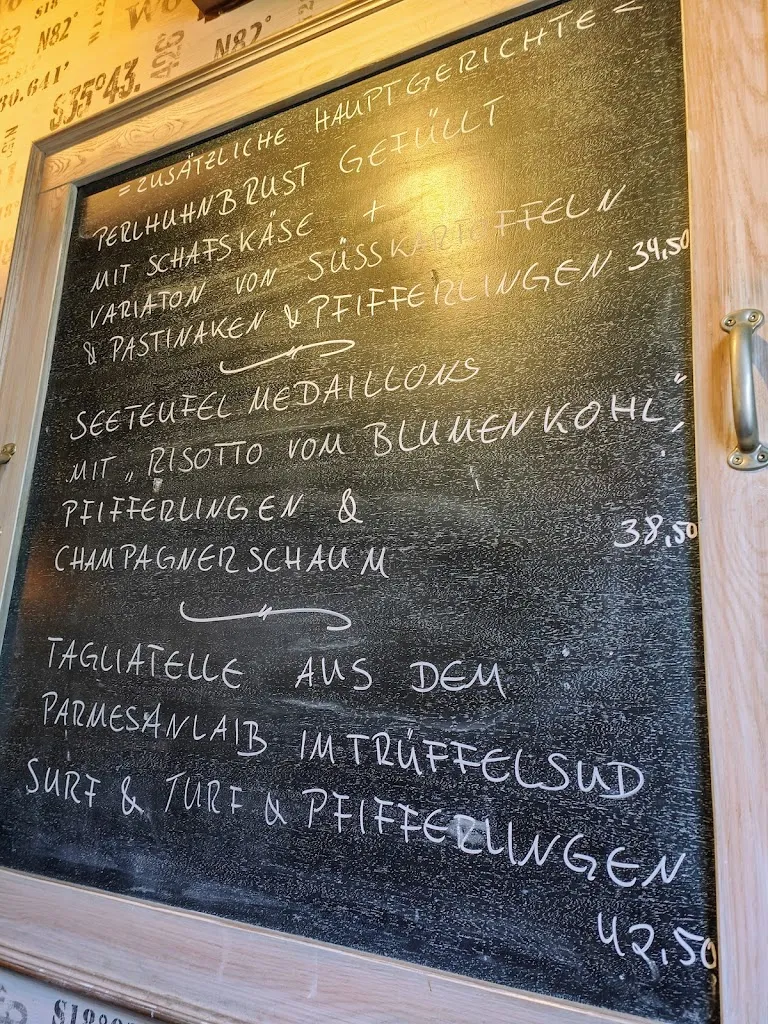 S18°
N82°
N82°
30.641'
S35°43.
= ZUSÄTZLICHE HAUPTGERICHTE =
PERLHUHNBRUST GEFÜLLT
MIT SCHAFSKÄSE +
VARIATON VON SÜSSKARTOFFELN
& PASTINAKEN & PFIFFERLINGEN 34,50
SEETEUFEL MEDAILLONS
MIT „RISOTTO VOM BLUMENKOHL",
PFIFFERLINGEN &
CHAMPAGNERSCHAUM 38,50
TAGLIATELLE AUS DEM
PARMESANLAIB IM TRÜFFELSUD
SURF & TURF & PFIFFERLINGEN
42,50